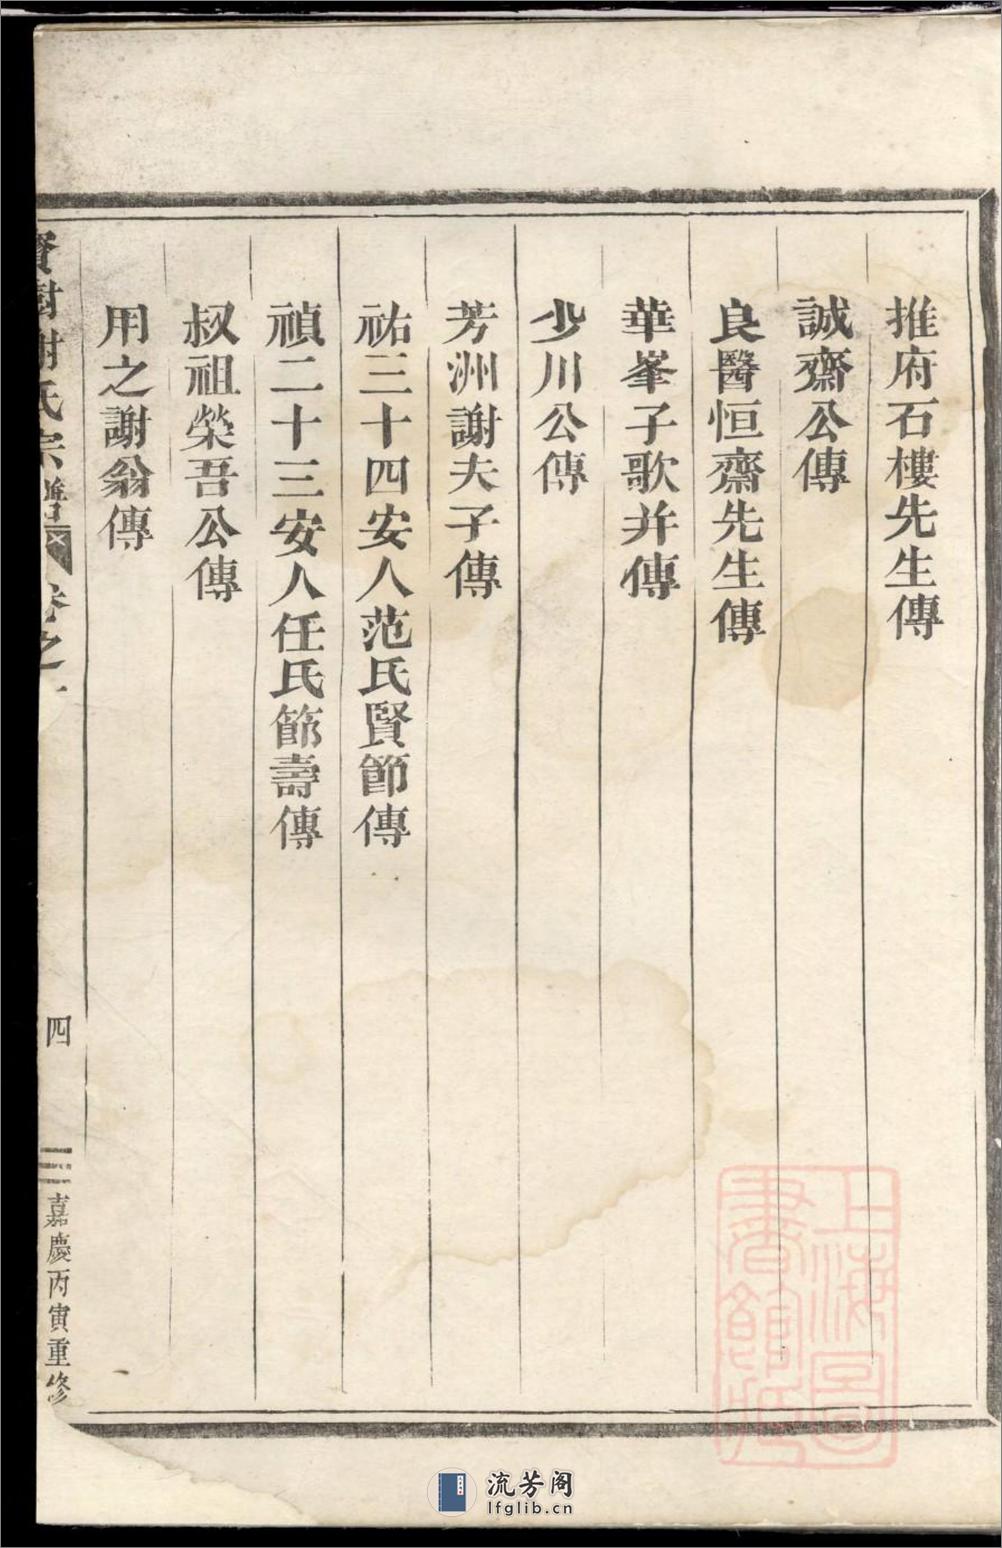 推府石樓先生傳
誠齋公傳
良醫恒齋先生傳
華峯子歌并傳
少川公傳
芳洲謝夫子傳
祐三十四安人范氏賢節傳
禎二十三安人任氏節壽傳
叔祖榮吾公傳
用之謝翁傳
謝氏宗譜 卷之一
四
嘉慶丙寅重修
上海圖書館藏
流芳阁
lfglib.cn